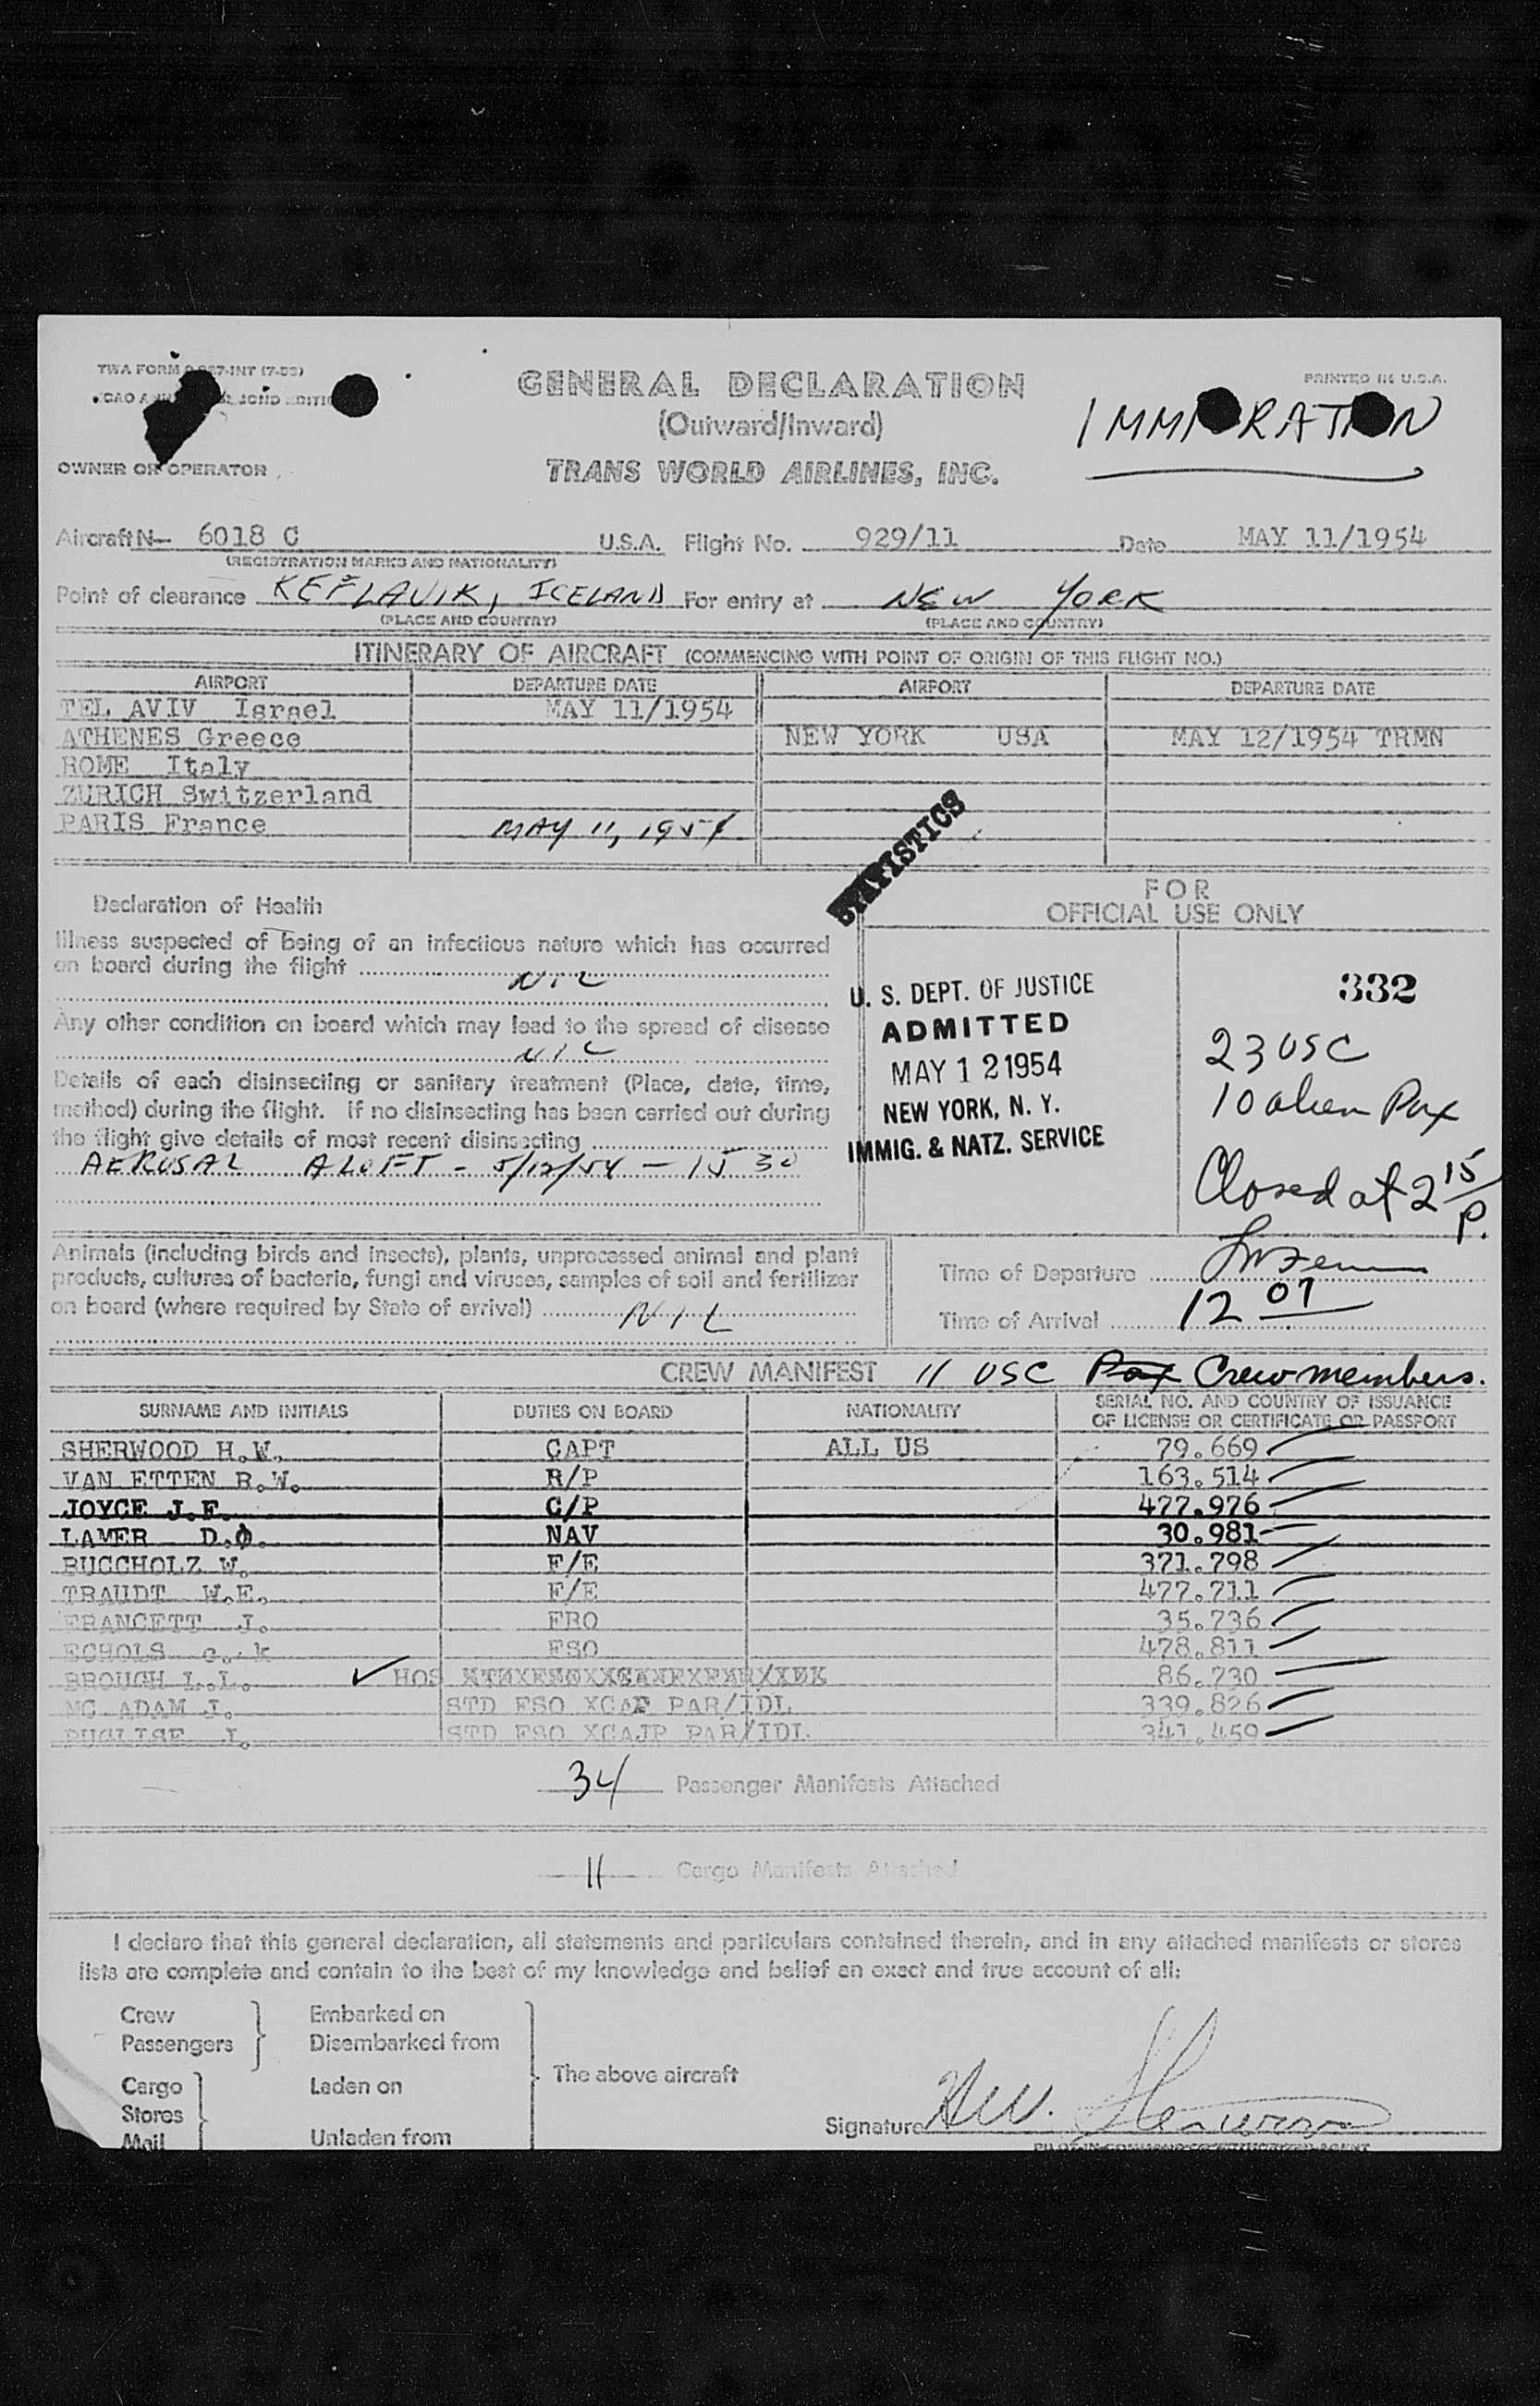 TWA FORM 27-INT (7-53)
PRINTED IN U.S.A.
GENERAL DECLARATION
(Outward/Inward)
IMMI RAT N
OWNER OR OPERATOR
TRANS WORLD AIRLINES, INC.
Aircraft N- 6018 C U.S.A. Flight No. 929/11 Date MAY 11/1954
(REGISTRATION MARKS AND NATIONALITY)
Point of clearance KEFLAVIK, ICELAND For entry at NEW YORK
(PLACE AND COUNTRY) (PLACE AND COUNTRY)
ITINERARY OF AIRCRAFT (COMMENCING WITH POINT OF ORIGIN OF THIS FLIGHT NO.)
AIRPORT DEPARTURE DATE AIRPORT DEPARTURE DATE
TEL AVIV Israel MAY 11/1954
ATHENES Greece NEW YORK USA MAY 12/1954 TRMN
ROME Italy
ZURICH Switzerland
PARIS France MAY 11, 1954
STATISTICS
Declaration of Health
FOR
OFFICIAL USE ONLY
Illness suspected of being of an infectious nature which has occurred
on board during the flight NIL
Any other condition on board which may lead to the spread of disease
NIL
Details of each disinsecting or sanitary treatment (Place, date, time,
method) during the flight. If no disinsecting has been carried out during
the flight give details of most recent disinsecting
AEROSAL ALOFT - 5/12/54 - 15 30
U. S. DEPT. OF JUSTICE
ADMITTED
MAY 12 1954
NEW YORK, N. Y.
IMMIG. & NATZ. SERVICE
332
23 USC
10 alien Pax
Closed at 2 15/P.
Animals (including birds and insects), plants, unprocessed animal and plant
products, cultures of bacteria, fungi and viruses, samples of soil and fertilizer
on board (where required by State of arrival) NIL
Time of Departure
Time of Arrival 12 07
CREW MANIFEST 11 USC Pax Crewmembers.
SURNAME AND INITIALS DUTIES ON BOARD NATIONALITY SERIAL NO. AND COUNTRY OF ISSUANCE
OF LICENSE OR CERTIFICATE OR PASSPORT
SHERWOOD H.W. CAPT ALL US 79.669
VAN ETTEN R.W. R/P 163.514
JOYCE J.F. C/P 477.976
LAMER D.O. NAV 30.981
BUCCHOLZ W. F/E 371.798
TRAUDT W.E. F/E 477.711
FRANCETT J. FRO 35.736
ECHOLS c. k FSO 478.811
BROUGH L.L. HOS 86.730
MC ADAM J. STD FSO XCAF PAR/IDL 339.826
PUGLISE J. STD FSO XCAJP PAR/IDL 341.459
34 Passenger Manifests Attached
11 Cargo Manifests Attached
I declare that this general declaration, all statements and particulars contained therein, and in any attached manifests or stores
lists are complete and contain to the best of my knowledge and belief an exact and true account of all:
Crew Embarked on
Passengers Disembarked from
Cargo Laden on The above aircraft
Stores
Mail Unladen from
Signature H.W. Sherwood
PILOT-IN-COMMAND OR AUTHORIZED AGENT